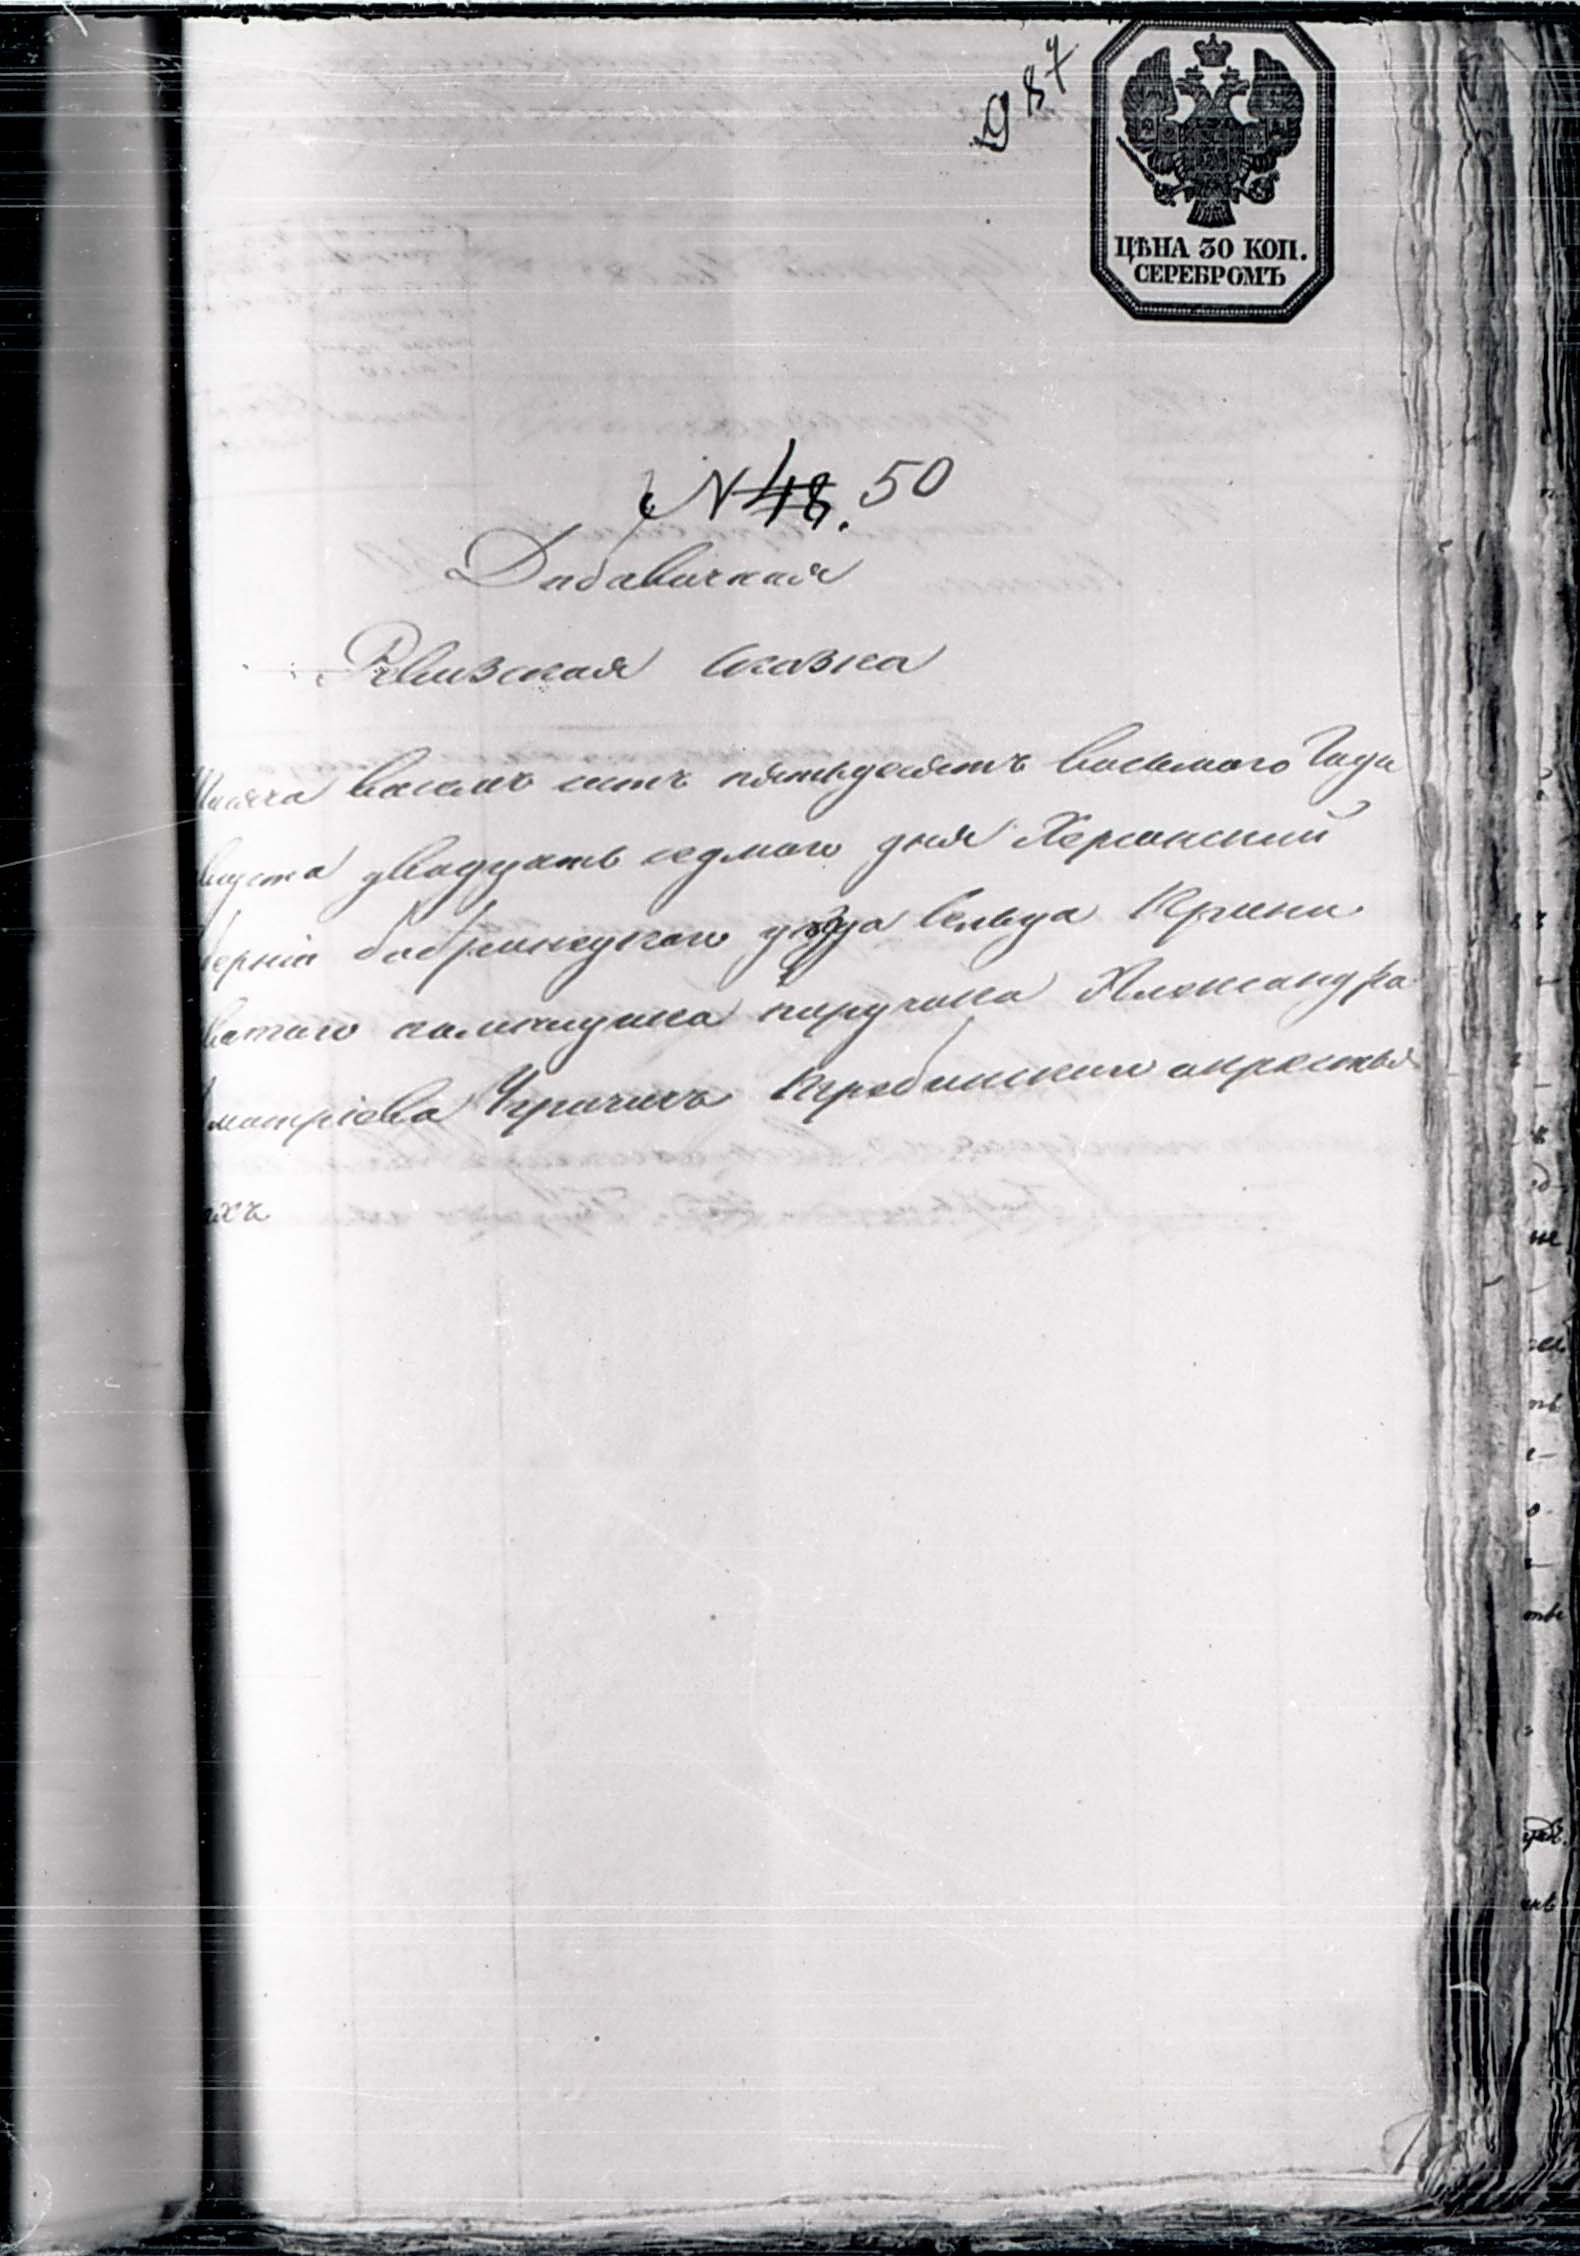 987
ЦѢНА 30 КОП.
СЕРЕБРОМЪ
N 48. 50
Дабавичная
Ревизская сказка
тысяча восемь сотъ пятьдесятъ восьмаго Года
вгуста двадцать седмаго дня Херсонский
берніи бобринецкаго уезда Сельца Крини
ватаго памещика паручика Александра
митріева сына окрестья
нахъ